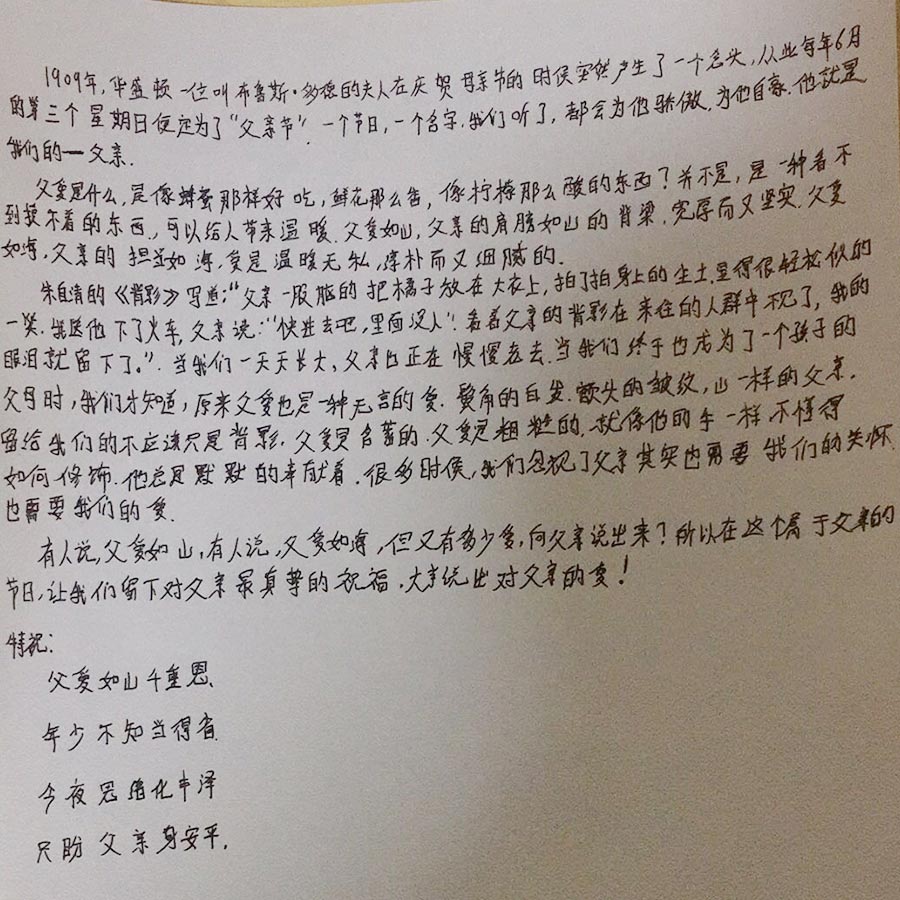 1909年,华盛顿一位叫布鲁斯·多德的夫人在庆贺母亲节的时侯突然产生了一个念头,从此每年6月
的第三个星期日便定为了“父亲节”.一个节日,一个名字.我们听了,都会为他骄傲.为他自豪.他就是
我们的一父亲.
父爱是什么,是像蜂蜜那样好吃,鲜花那么香,像柠檬那么酸的东西?并不是,是一种看不
到摸不着的东西.可以给人带来温暖.父爱如山,父亲的肩膀如山的脊梁.宽厚而又坚实.父爱
如海,父亲的担当如海,爱是温暖无私,淳朴而又细腻的.
朱自清的《背影》写道:“父亲一股脑的把橘子放在大衣上,拍了拍身上的尘土显得很轻松似的
一笑.我送他下了火车,父亲说:“快进去吧,里面没人”.看着父亲的背影在来往的人群中不见了,我的
眼泪就留下了。”.当我们一天天长大,父亲也正在慢慢老去.当我们终于也成为了一个孩子的
父母时,我们才知道,原来父爱也是一种无言的爱.鬓角的白发.额头的皱纹,山一样的父亲.
留给我们的不应该只是背影.父爱是含蓄的.父爱是粗糙的.就像他的手一样不懂得
如何修饰.他总是默默的奉献着.很多时候,我们忽视了父亲其实也需要我们的关怀.
也需要我们的爱.
有人说,父爱如山,有人说,父爱如海,但又有多少爱,向父亲说出来?所以在这个属于父亲的
节日,让我们留下对父亲最真挚的祝福.大声说出对父亲的爱!
特祝:
父爱如山千重恩.
年少不知当得省.
今夜思绪化丰泽
只盼父亲身安平.